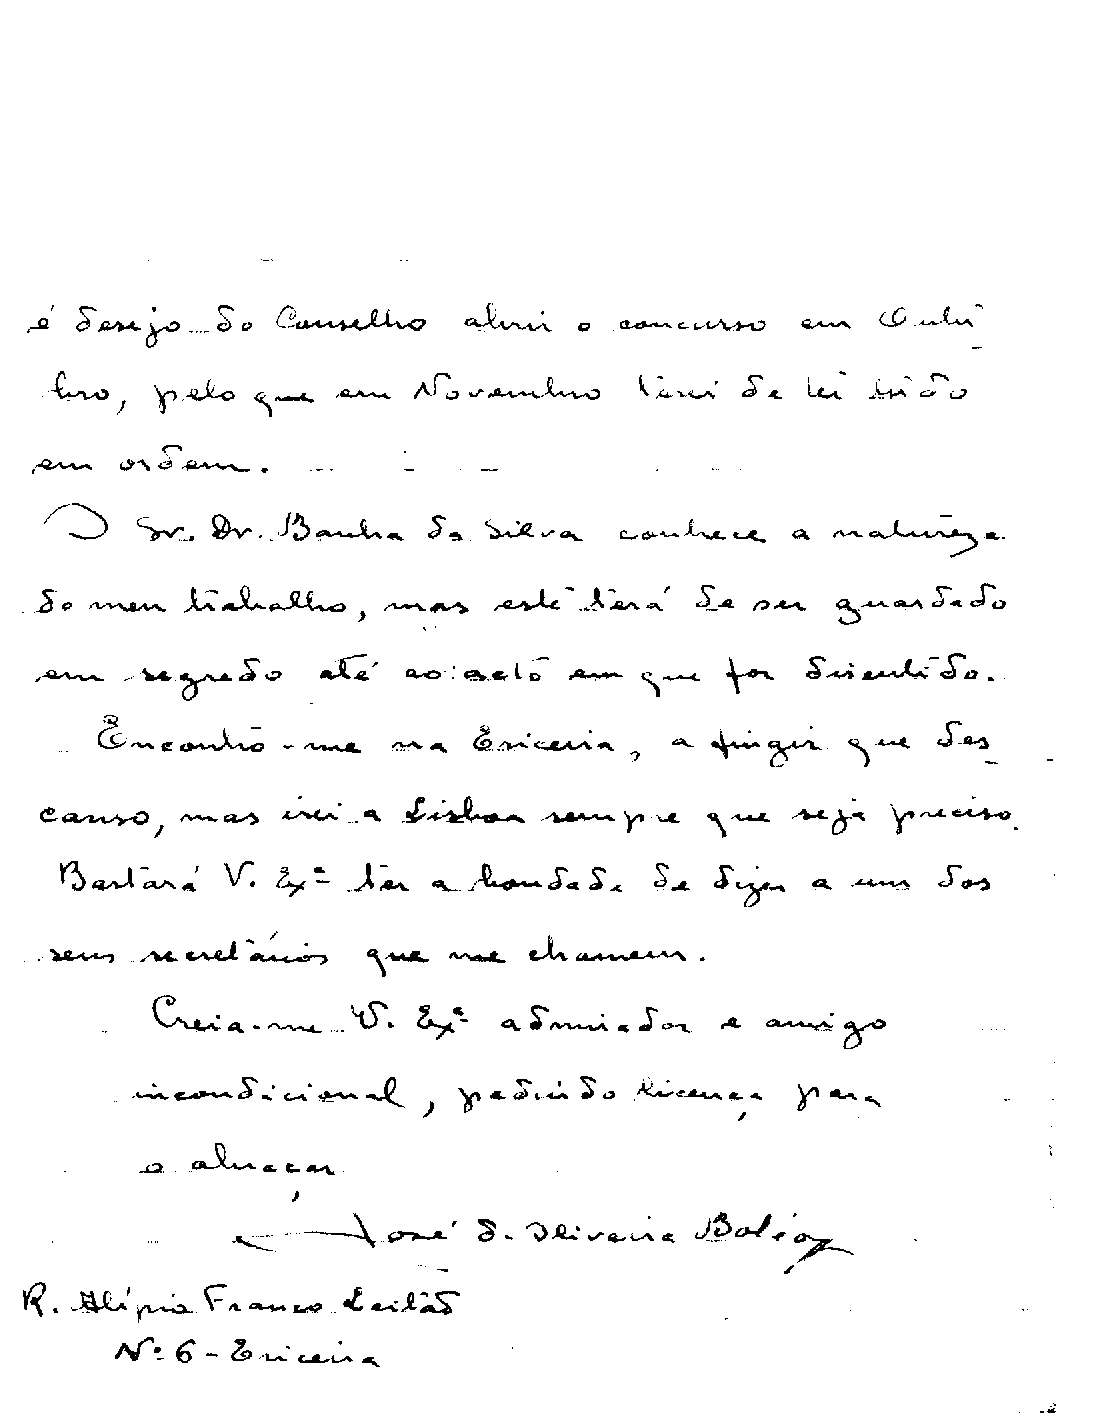 é desejo do Conselho abrir o concurso em Outu-
bro, pelo que em Novembro terei de ter tudo
em ordem.
O Sr. Dr. Banha da Silva conhece a natureza
do meu trabalho, mas este terá de ser guardado
em segredo até ao acto em que for discutido.
Encontro-me na Ericeira, a fingir que des-
canso, mas irei a Lisboa sempre que seja preciso.
Bastará V. Exª ter a bondade de dizer a um dos
seus secretários que me chamem.
Creia-me V. Exª admirador e amigo
incondicional, pedindo licença para
o abraçar
José d. Oliveira Boléo
R. Alípio Franco Leitão
Nº 6 - Ericeira